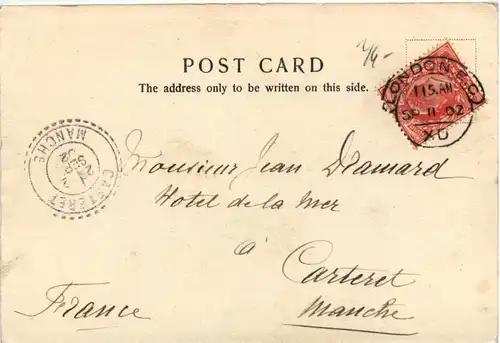 1/6-
POST CARD
The address only to be written on this side.
LONDON.E.C
1 15.AM
SP 11 02
XC
CARTERET
MANCHE
Monsieur Jean Diamard
Hotel de la Mer
à
Carteret
Manche
France